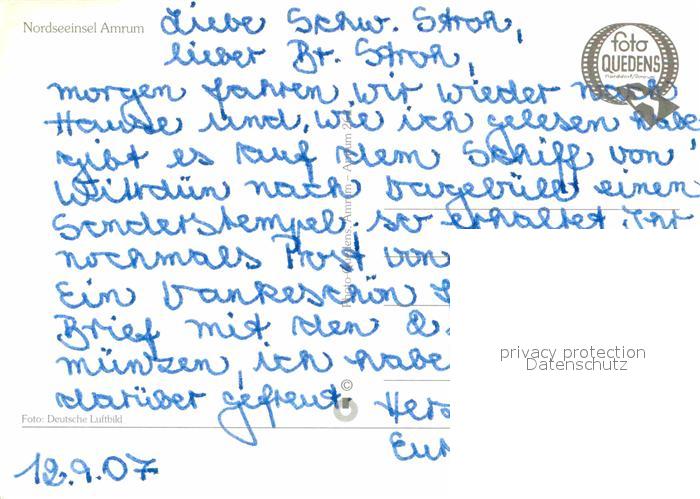 Nordseeinsel Amrum
foto
QUEDENS
Norddorf/Amrum
Liebe Schw. Stroh,
lieber Br. Stroh,
morgen fahren wir wieder nach
Hause und, wie ich gelesen habe
gibt es auf dem Schiff von
Wittdün nach Dagebüll einen
Sonderstempel. so erhaltet Ihr
nochmals Post von
Ein Dankeschön
Brief mit den
münzen, ich habe
darüber gefreut.
Foto: Deutsche Luftbild
12.9.07
privacy protection
Datenschutz